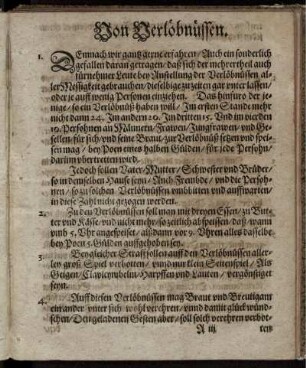 Von Verlöbnüssen.
1. DEmnach wir gantz gerne erfahren / Auch ein sonderlich
gefallen daran getragen / daß sich der mehrertheil auch
fürnehmer Leute bey Anstellung der Verlöbnüssen al-
ler Mässigkeit gebrauchen / dieselbige zu zeiten gar unterlassen /
oder je auff wenig Personen einziehen. Das hinfuro der je-
nige / so ein Verlöbnüß haben will / Im ersten Stande mehr
nicht dann 24. Im andern 20. Im dritten 15. Und im vierdten
10. Persohnen an Männern / Frawen / Jungfrawen / und Ge-
sellen / für sich / und seine Braut zur Verlöbnüß setzen und spei-
sen mag / bey Poen eines halben Gülden / für jede Persohn /
darum übertretten wird.
Jedoch sollen Vater / Mutter / Schwester und Brüder /
so in demselben Hause seyn / Auch Frembde / und die Persoh-
nen / so zu solchen Verlöbnüssen umbbitten und auffwarten /
in diese Zahl nicht gezogen werden.
2. Zu den Verlöbnüssen soll man mit dreyen Essen / zu But-
ter und Käse / und nicht mehr / so zeitlich abspeisen / daß / wann
umb 5. Uhr angespeiset / alßdann vor 9. Uhren alles dasselbe
bey Poen 5. Gülden auffgehoben sey.
3. Bey gleicher Straff sollen auff den Verlöbnüssen aller-
ley groß Spiel verbotten / und nur klein Seitenspiel / Als
Geigen / Clavicymbeln / Harpffen und Lauten / vergönstiget
seyn.
4. Auff diesen Verlöbnüssen mag Braut und Breutigam
einander unter sich wohl verehren / unnd damit glück wünd-
schen / Den geladenen Gesten aber / soll solch verehren verbot-
A iij ten